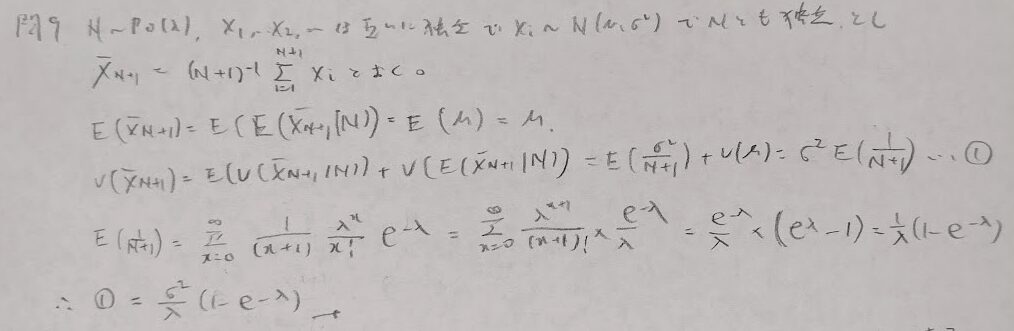 問9 N~Po(λ), X₁, X₂, … は互いに独立で Xᵢ ~ N(μ, σ²) で Nとも独立とし
X̄_{N+1} = (N+1)⁻¹ Σ_{i=1}^{N+1} Xᵢ とおく。
E(X̄_{N+1}) = E(E(X̄_{N+1}|N)) = E(μ) = μ.
V(X̄_{N+1}) = E(V(X̄_{N+1}|N)) + V(E(X̄_{N+1}|N)) = E(σ²/(N+1)) + V(μ) = σ² E(1/(N+1)) … ①
E(1/(N+1)) = Σ_{x=0}^{∞} 1/(x+1) λ^x/x! e^{-λ} = Σ_{x=0}^{∞} λ^{x+1}/(x+1)! × e^{-λ}/λ = e^{-λ}/λ × (e^λ - 1) = 1/λ (1 - e^{-λ})
∴ ① = σ²/λ (1 - e^{-λ})